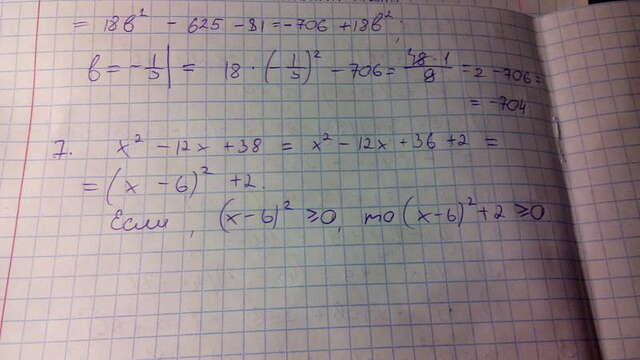 = 18b² - 625 - 81 = -706 + 18b²;
b = -1/3 | = 18 · (-1/3)² - 706 = 18·1/9 = 2 - 706 =
= -704
7. x² - 12x + 38 = x² - 12x + 36 + 2 =
= (x - 6)² + 2.
Если, (x-6)² ≥ 0, то (x-6)² + 2 ≥ 0